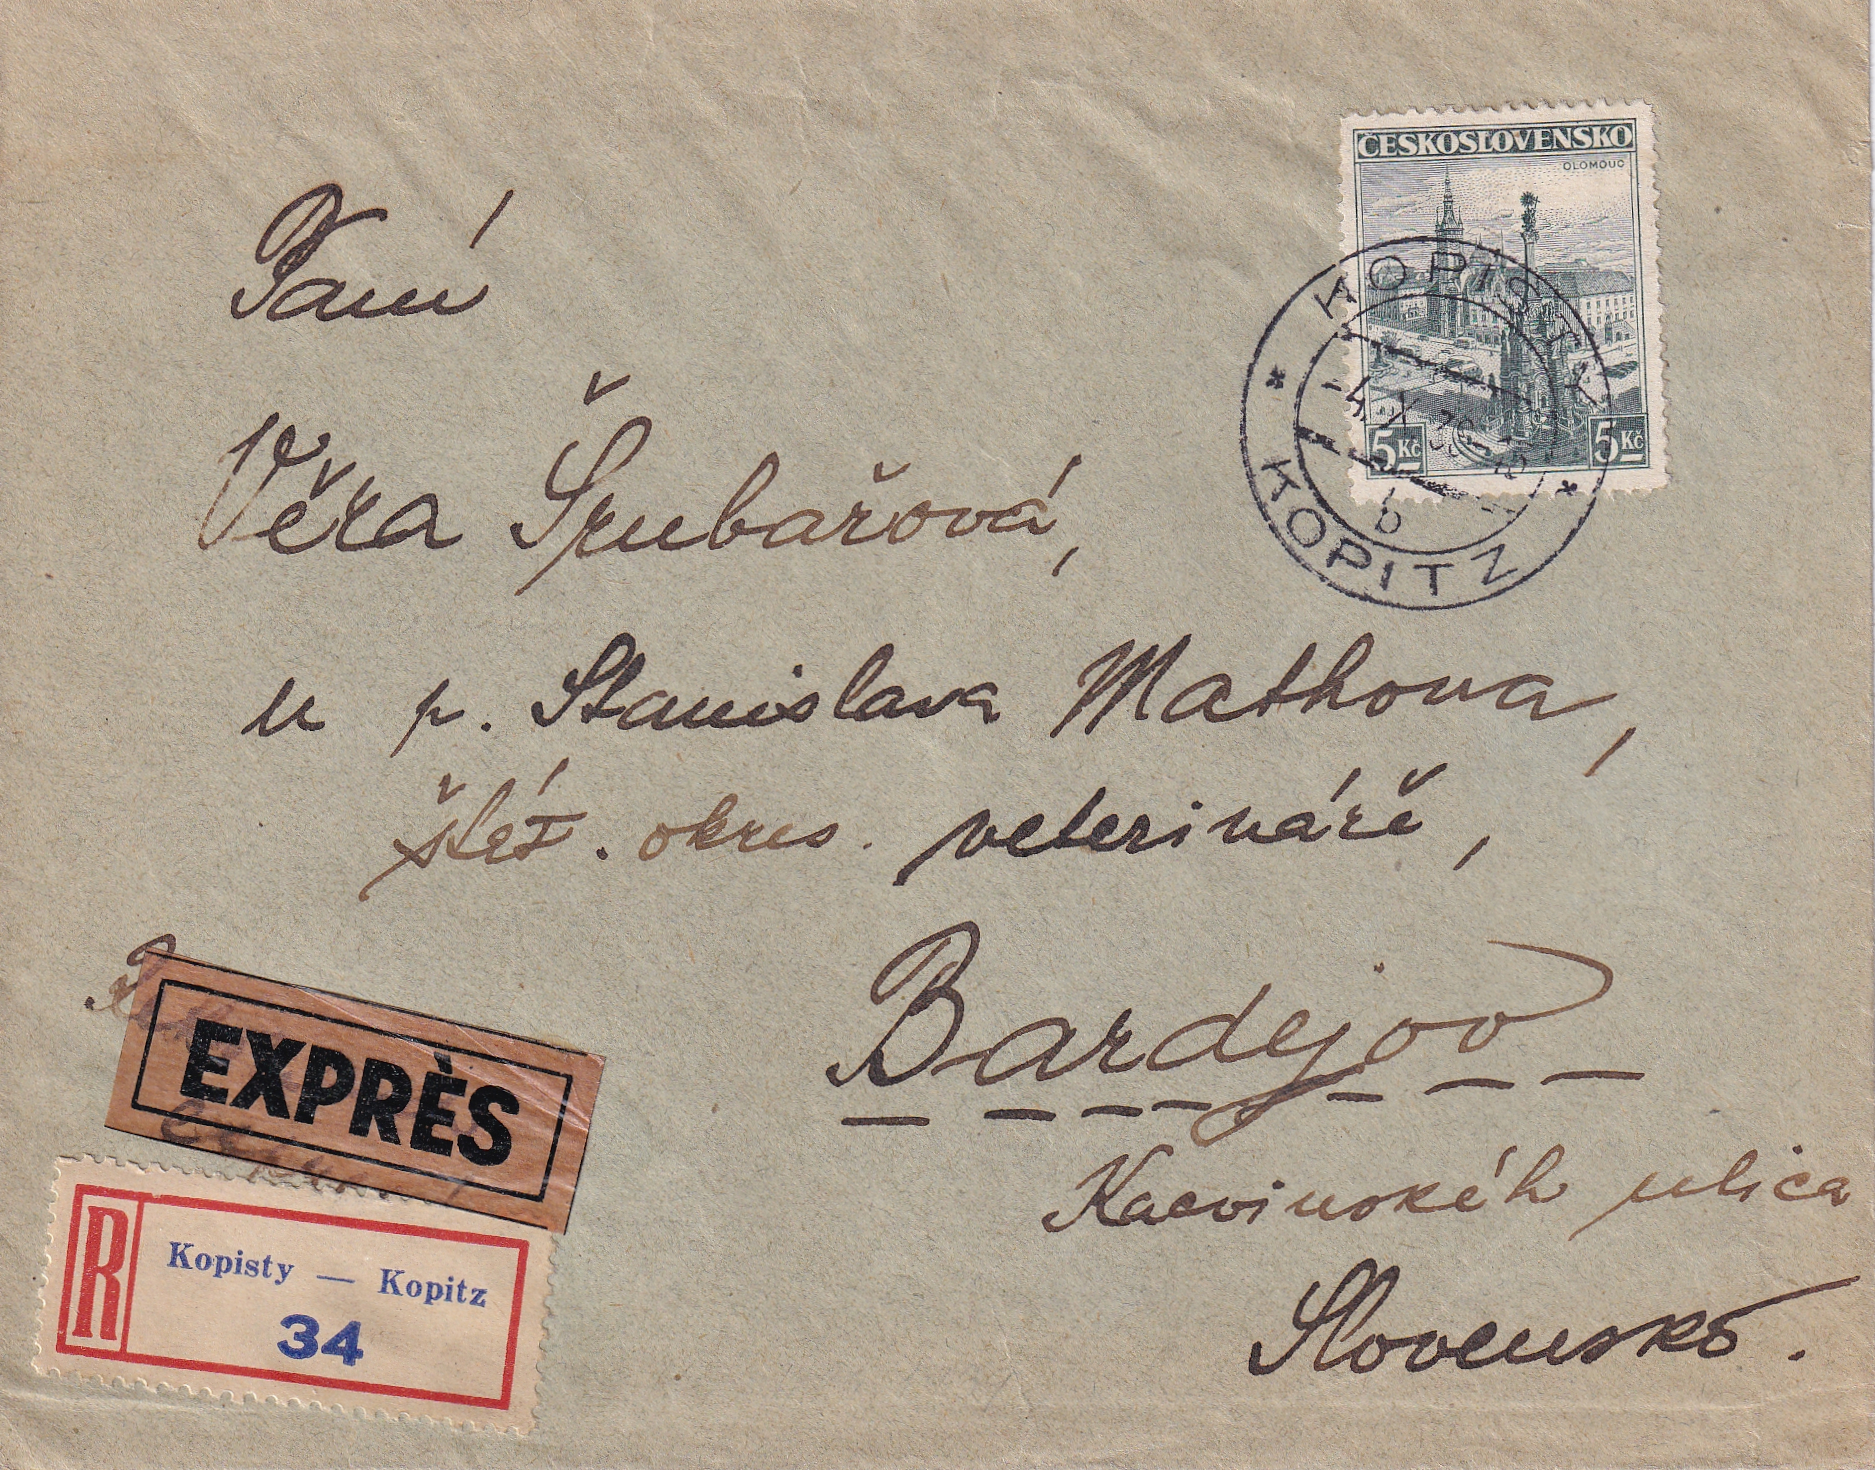 ČESKOSLOVENSKO
OLOMOUC
5 Kč 5 Kč
KOPISTY
KOPITZ
b
Paní
Věra Šrubařová,
u p. Stanislava Mathona,
okres. veterináře,
Bardejov
ulica
Slovensko.
EXPRÈS
R
Kopisty — Kopitz
34